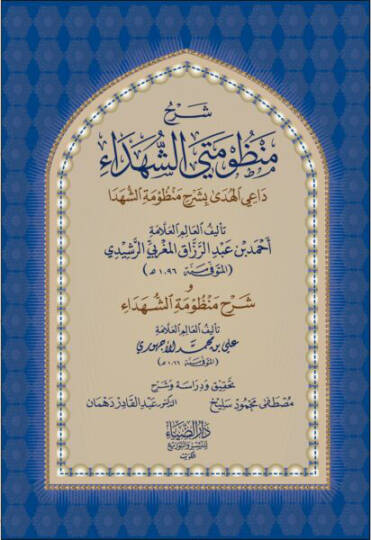 شَرْحُ
مَنْظُومَتَي الشُّهَدَاءِ
دَاعِي الْهُدَى بِشَرْحِ مَنْظُومَةِ الشُّهَدَا
تأليف العَالِم العَلَّامَةِ
أَحْمَدَ بْن عَبْدِ الرَّزَّاقِ المَغْرِبِيِّ الرَّشِيدِيِّ
(المتوفى سنة ١٠٩٦ هـ)
و
شَرْحُ مَنْظُومَةِ الشُّهَدَاءِ
تأليف العَالِم العَلَّامَةِ
علي بن محمد الأجهوري
(المتوفى سنة ١٠٦٦ هـ)
تحقيق ودراسة وشرح
مصطفى محمود سليخ
الدكتور عبد القادر دهمان
دار الضياء
للنشر والتوزيع
الكويت